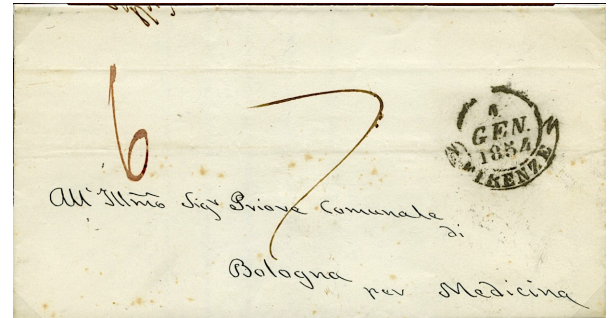 6
7
4
GEN.
1854
FIRENZE
All' Illmo Sigr Priore Comunale
di
Bologna
per Medicina